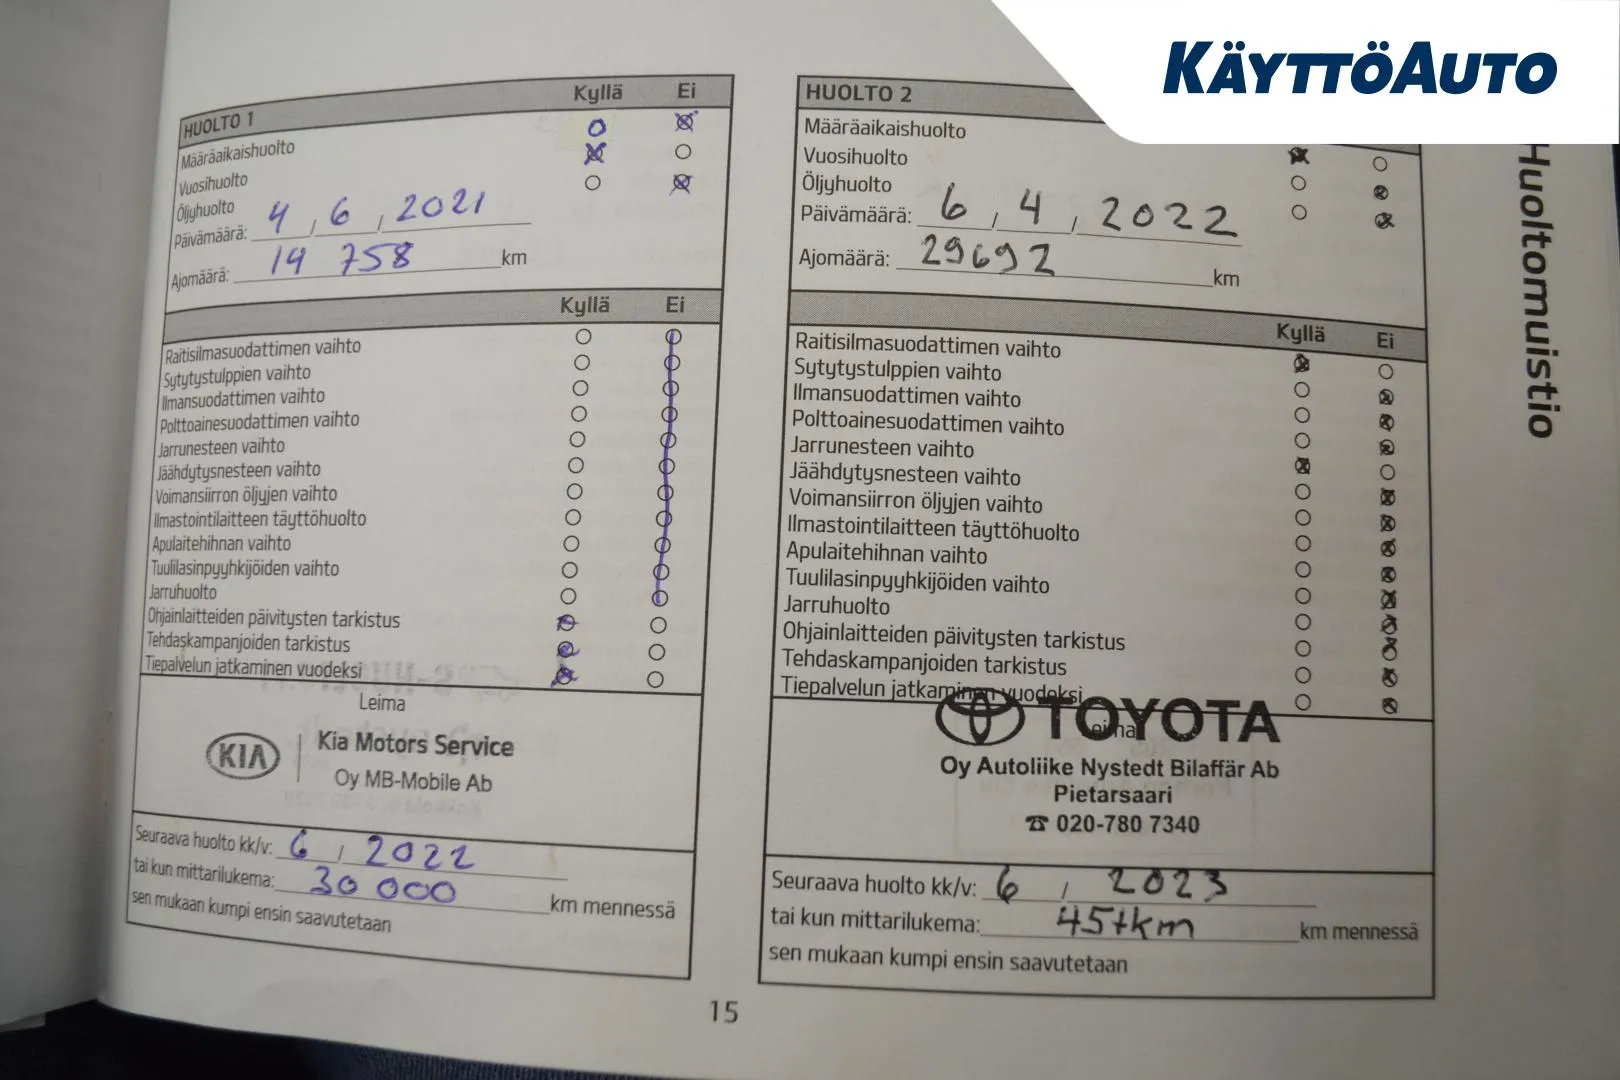 KÄYTTÖAUTO
Huoltomuistio
HUOLTO 1 Kyllä Ei
Määräaikaishuolto
Vuosihuolto
Öljyhuolto
Päivämäärä: 4 / 6 / 2021
Ajomäärä: 14 758 km
Kyllä Ei
Raitisilmasuodattimen vaihto
Sytytystulppien vaihto
Ilmansuodattimen vaihto
Polttoainesuodattimen vaihto
Jarrunesteen vaihto
Jäähdytysnesteen vaihto
Voimansiirron öljyjen vaihto
Ilmastointilaitteen täyttöhuolto
Apulaitehihnan vaihto
Tuulilasinpyyhkijöiden vaihto
Jarruhuolto
Ohjainlaitteiden päivitysten tarkistus
Tehdaskampanjoiden tarkistus
Tiepalvelun jatkaminen vuodeksi
Leima
KIA Kia Motors Service
Oy MB-Mobile Ab
Seuraava huolto kk/v: 6 / 2022
tai kun mittarilukema: 30 000 km mennessä
sen mukaan kumpi ensin saavutetaan
HUOLTO 2
Määräaikaishuolto
Vuosihuolto
Öljyhuolto
Päivämäärä: 6 / 4 / 2022
Ajomäärä: 29692 km
Kyllä Ei
Raitisilmasuodattimen vaihto
Sytytystulppien vaihto
Ilmansuodattimen vaihto
Polttoainesuodattimen vaihto
Jarrunesteen vaihto
Jäähdytysnesteen vaihto
Voimansiirron öljyjen vaihto
Ilmastointilaitteen täyttöhuolto
Apulaitehihnan vaihto
Tuulilasinpyyhkijöiden vaihto
Jarruhuolto
Ohjainlaitteiden päivitysten tarkistus
Tehdaskampanjoiden tarkistus
Tiepalvelun jatkaminen vuodeksi
Leima
TOYOTA
Oy Autoliike Nystedt Bilaffär Ab
Pietarsaari
☎ 020-780 7340
Seuraava huolto kk/v: 6 / 2023
tai kun mittarilukema: 45tkm km mennessä
sen mukaan kumpi ensin saavutetaan
15